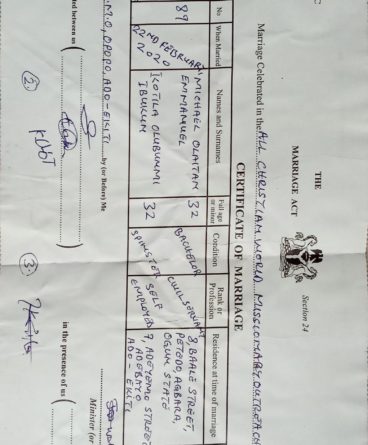 THE
MARRIAGE ACT
Section 24
CERTIFICATE OF MARRIAGE
Marriage Celebrated in the ALL CHRISTIAN WORLD MISSIONARY OUTREACH
No
When Married
Names and Surnames
Full age or minor
Condition
Rank or Profession
Residence at time of marriage
89
22ND FEBRUARY 2020
MICHAEL OLAITAN EMMANUEL
32
BACHELOR
CIVIL SERVANT
8, BAALE STREET, PETEDO, AGBARA, OGUN STATE
KOTILA OLUBUNMI IBUKUN
32
SPINSTER
SELF EMPLOYED
7, ADEYEMO STREET, ADEBAYO ADO-EKITI
OPOPO, ADO-EKITI by (or Before) Me
Minister (or
ted between us
in the presence of us
2.
3.